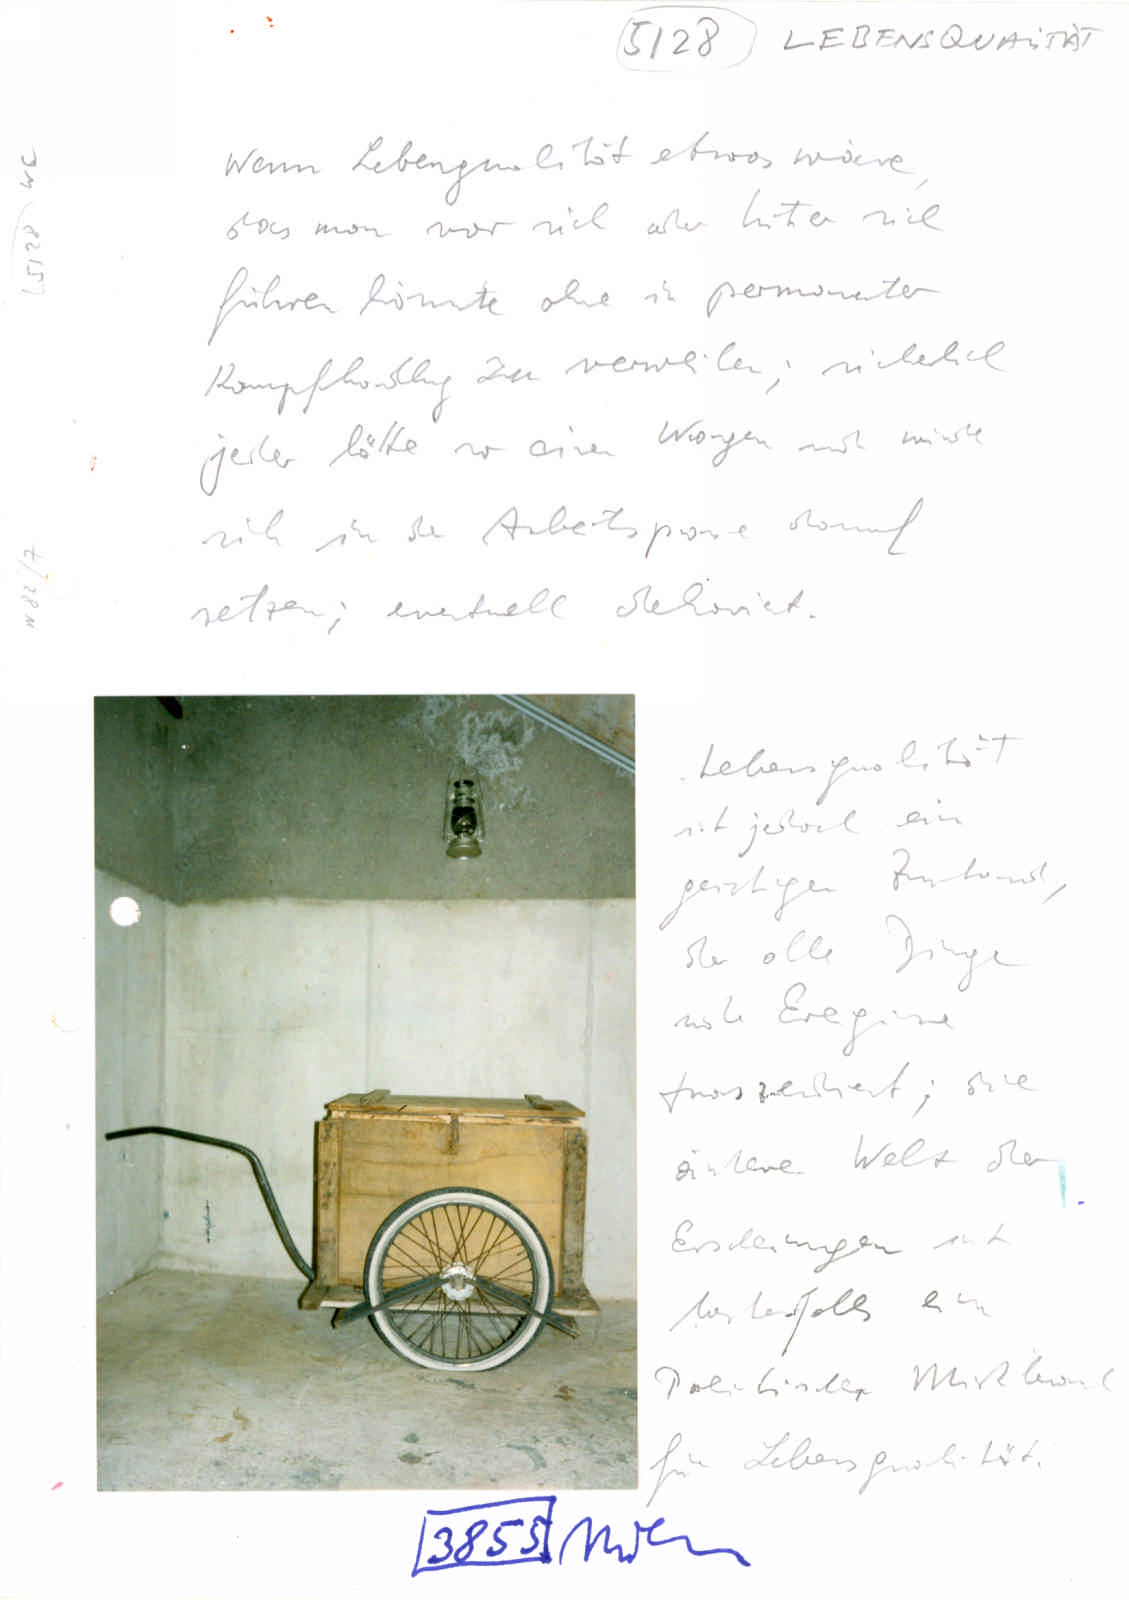 5128 LEBENSQUALITÄT
Wenn Lebensqualität etwas wäre,
das man vor sich oder hinter sich
führen könnte ohne in permanenter
Kampfhandlung zu verweilen; sicherlich
jeder hätte so einen Wagen und würde
sich in der Arbeitspause darauf
setzen; eventuell dekoriert.
Lebensqualität
ist jedoch ein
geistiger Zustand,
der alle Dinge
und Ereignisse
transzendiert; die
äußere Welt der
Erscheinungen ist
bestenfalls ein
Politischer
für Lebensqualität.
3855
5128 WE
7/28 W